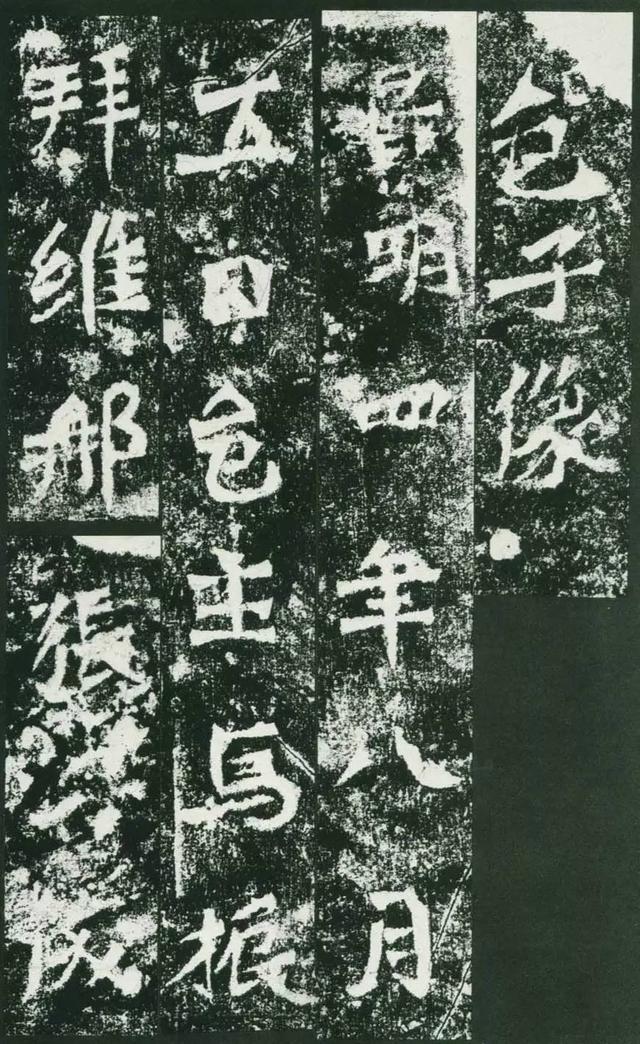 邑子像
景明四年八月
五日邑主馬振
拜維那張成